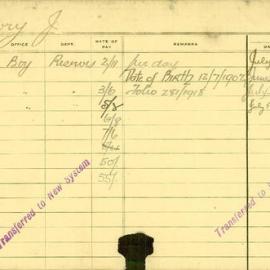 ory J.
OFFICE DEPT. RATE OF PAY REMARKS
Boy Reserves 2/11 per day July
" " Date of Birth 12/7/1902
3/6 Folio 281/1918 July
5/8
6/8
7/6
50/
55/
Transferred to New System
Transferred to